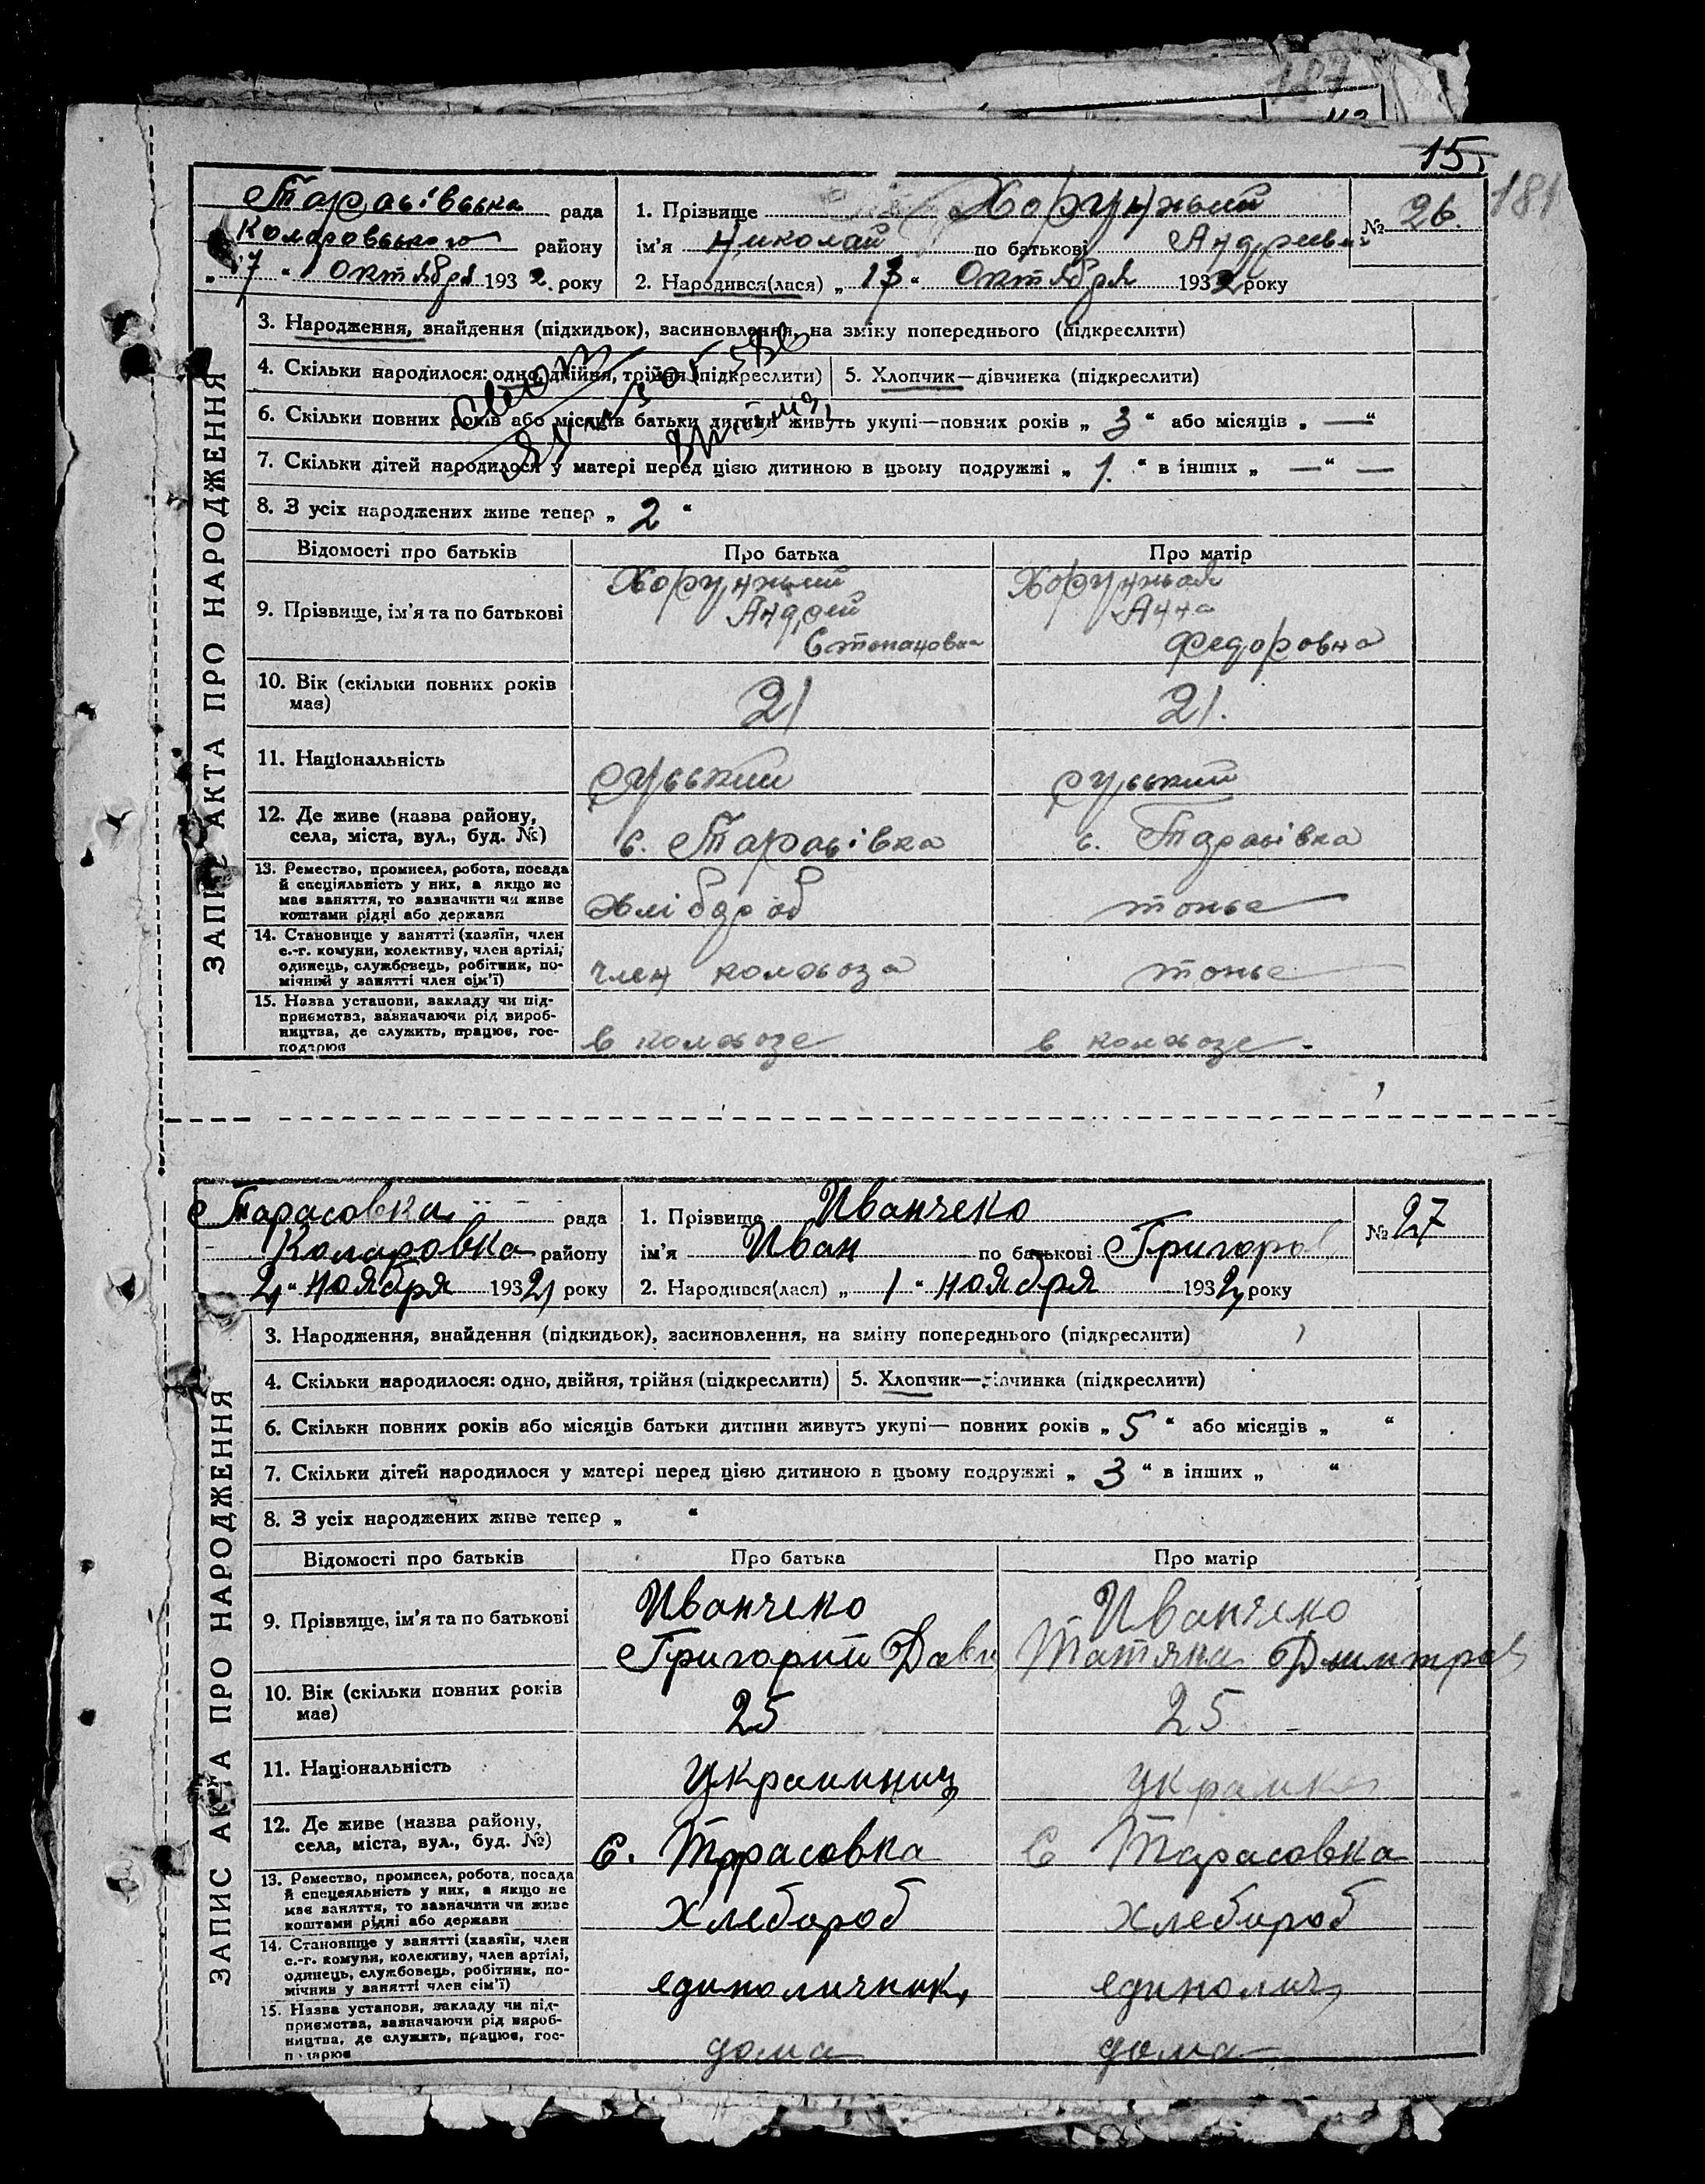 187
№
15
181
Тарасівська рада
Коларовського району
„17“ Октября 1932 року
1. Прізвище Хоружный
ім'я Николай по батькові Андреев
2. Народився(лася) „13“ Октября 1932 року
№ 26.
ЗАПИС АКТА ПРО НАРОДЖЕННЯ
3. Народження, знайдення (підкидьок), засиновлення, на зміну попереднього (підкреслити)
4. Скільки народилося: одно, двійня, трійня (підкреслити)
5. Хлопчик—дівчинка (підкреслити)
6. Скільки повних років або місяців батьки дитини живуть укупі—повних років „3“ або місяців „—“
7. Скільки дітей народилося у матері перед цією дитиною в цьому подружжі „1.“ в інших „—“ —
8. З усіх народжених живе тепер „2“
Відомості про батьків Про батька Про матір
9. Прізвище, ім'я та по батькові
Хоружный Хоружная
Андрей Анна
Федоровна
10. Вік (скільки повних років має) 21 21.
11. Національність руський руський
12. Де живе (назва району,
села, міста, вул., буд. №) с. Тарасівка с. Тарасівка
13. Ремество, промисел, робота, посада
й спеціяльність у них, а якщо не
має заняття, то зазначити чи живе
коштами рідні або держави
хлібороб тоже
14. Становище у занятті (хазяїн, член
с.-г. комуни, колективу, член артілі,
одинець, службовець, робітник, по-
мічний у занятті член сім'ї)
член колхоза тоже
15. Назва установи, закладу чи під-
приємства, зазначаючи рід вироб-
ництва, де служить, працює, гос-
подарює
в колхозе в колхозе.
Тарасовка рада
Коларовка району
2 „ ноября 1932 року
1. Прізвище Иванчеко
ім'я Иван по батькові Григоров
2. Народився(лася) „1“ ноября 1932 року
№ 27
ЗАПИС АКТА ПРО НАРОДЖЕННЯ
3. Народження, знайдення (підкидьок), засиновлення, на зміну попереднього (підкреслити)
4. Скільки народилося: одно, двійня, трійня (підкреслити)
5. Хлопчик—дівчинка (підкреслити)
6. Скільки повних років або місяців батьки дитини живуть укупі— повних років „5“ або місяців „ “
7. Скільки дітей народилося у матері перед цією дитиною в цьому подружжі „3“ в інших „ “
8. З усіх народжених живе тепер „ “
Відомості про батьків Про батька Про матір
9. Прізвище, ім'я та по батькові
Иванчеко Иванчеко
Григорий Дави Татяна Димитров
10. Вік (скільки повних років має) 25 25
11. Національність Украиниц украинка
12. Де живе (назва району,
села, міста, вул., буд. №) с. Тарасовка С Тарасовка
13. Ремество, промисел, робота, посада
й спецеяльність у них, а якщо не
має заняття, то зазначити чи живе
коштами рідні або держави
Хлебароб хлебароб
14. Становище у занятті (хазяїн, член
с.-г. комуни, колективу, член артілі,
одинець, службовець, робітник, по-
мічний у занятті член сім'ї)
единоличник единолич
15. Назва установи, закладу чи під-
приємства, зазначаючи рід вироб-
ництва, де служить, працює, гос-
подарює
дома дома